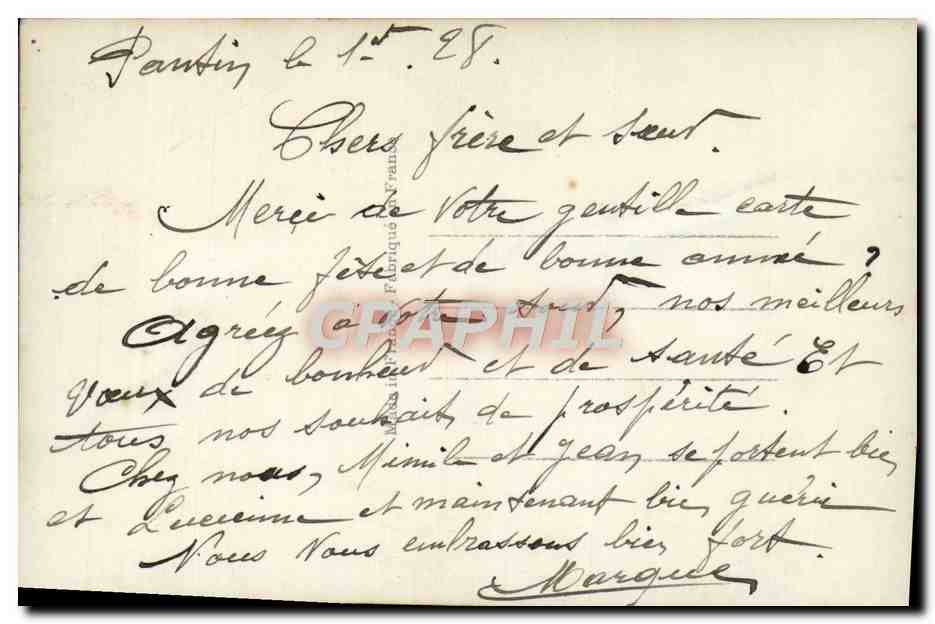 Pantin le 1er 28.
Chers frère et sœur.
Merçi de votre gentille carte
de bonne fête et de bonne année,
Agréez à votre tour, nos meilleurs
vœux de bonheur et de santé Et
tous nos souhait de prospérité.
Chez nous, Mimile et Jean se portent bien
et Lucienne et maintenant bien guérie
Nous Vous embrassons bien fort.
Margue
Made in France / Fabriqué en France
CPAPHIL